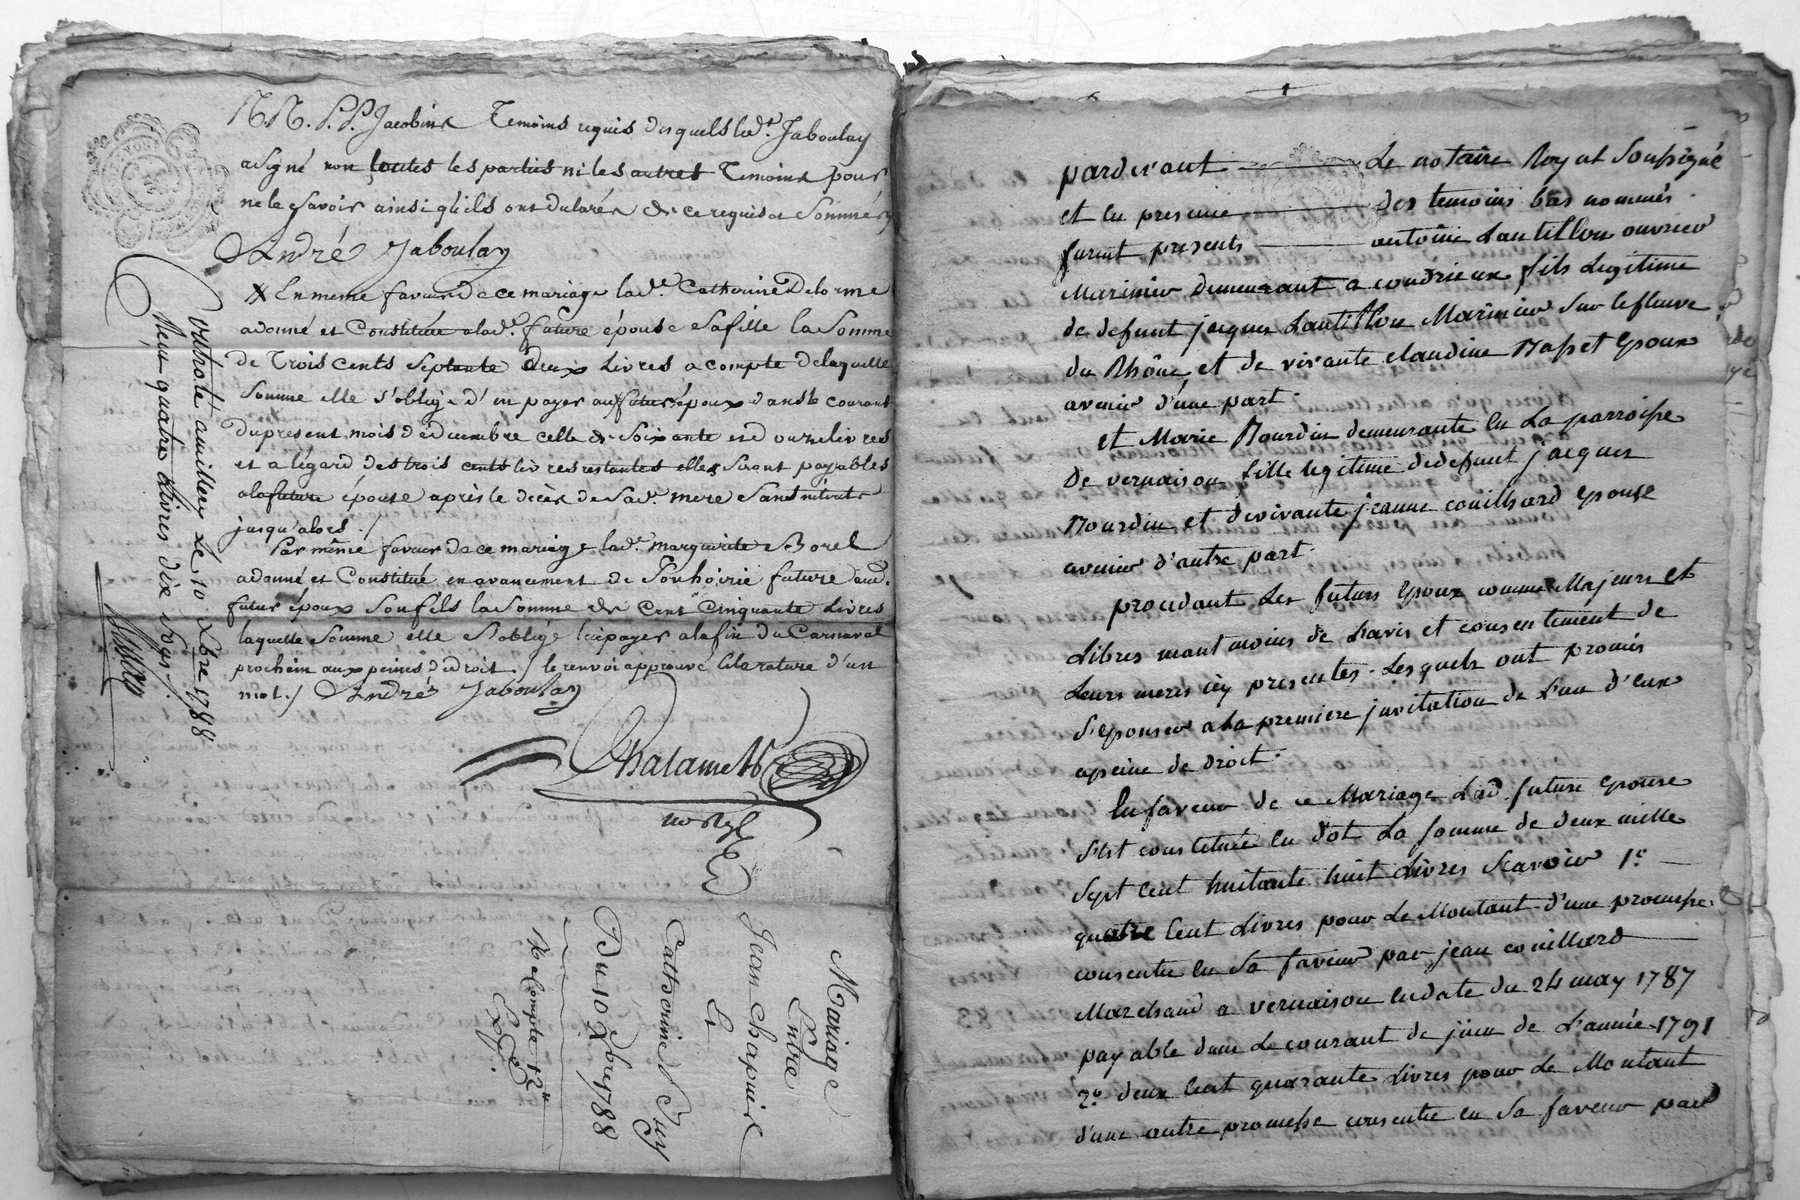 N.N. P.P. Jacobins Temoins requis desquels led.t Jaboulay
a Signé non toutes les parties ni les autres Temoins pour
ne le Savoir ainsi qu'ils ont declarés de ce requis et Sommés
André Jaboulay
En meme faveur de ce mariage lad.e Catherine Delorme
a donné et Constitué a lad.e future épouse Sa fille la Somme
de Trois Cents Septante deux Livres a compte de laquelle
Somme elle s'oblige d'en payer au futur époux dans le courant
du present mois de decembre celle de Soixante et douze livres
et a légard des trois cents livres restantes elles Seront payables
a la future épouse après le décès de Sad.e mere Sans intérêts
jusqu'alors ./
Par même faveur de ce mariage lad.e marguerite Borel
a donné et Constitué en avancement de Son hoirie future aud.
futur époux Son fils la Somme de Cent Cinquante Livres
laquelle Somme elle S'oblige lui payer a la fin du Carnaval
prochain aux peines de droit / le renvoi approuvé la rature d'un
mot ./ André Jaboulay
Chalamel
no.re
Controlé a millery Le 10 Xbre 1788
Reçu quatre Livres dix Sols ./.
Mariage
Entre
Jean Chapuis
Et
Catherine
Du 10 Xbre 1788
Compte 12
Exp.é
pardevant Le notaire Royal Soussigné
et en presence des temoins bas nommés
furent presents antoine Lantillon ouvrier
Marinier demeurant a condrieux fils Legitime
de defunt jacques Lantillon Marinier Sur le fleuve
du Rhône et de vivante claudine Masset Epoux
avenir d'une part.
et Marie Bourdin demeurante en La parroisse
de vernaison fille legitime de defunt jacques
Bourdin et de vivante jeanne couilhard epouse
avenir d'autre part.
procedant Les futurs Epoux comme Majeurs et
Libres neantmoins de L'avis et consentement de
Leurs meres icy presentes. Lesquels ont promis
S'epouser a La premiere jnvitation de L'un d'Eux
a peine de droit.
En faveur de ce Mariage Lad. future epouse
s'est constituée en Dot La Somme de deux mille
Sept Cent huitante huit Livres Scavoir 1.e
quatre Cent Livres pour Le Montant d'une promesse
consentie en Sa faveur par jean couillard
Marchand a vernaison En date du 24 may 1787
payable dans Le courant de juin de L'année 1791
2.o deux Cent quarante Livres pour Le Montant
d'une autre promesse consentie en Sa faveur par